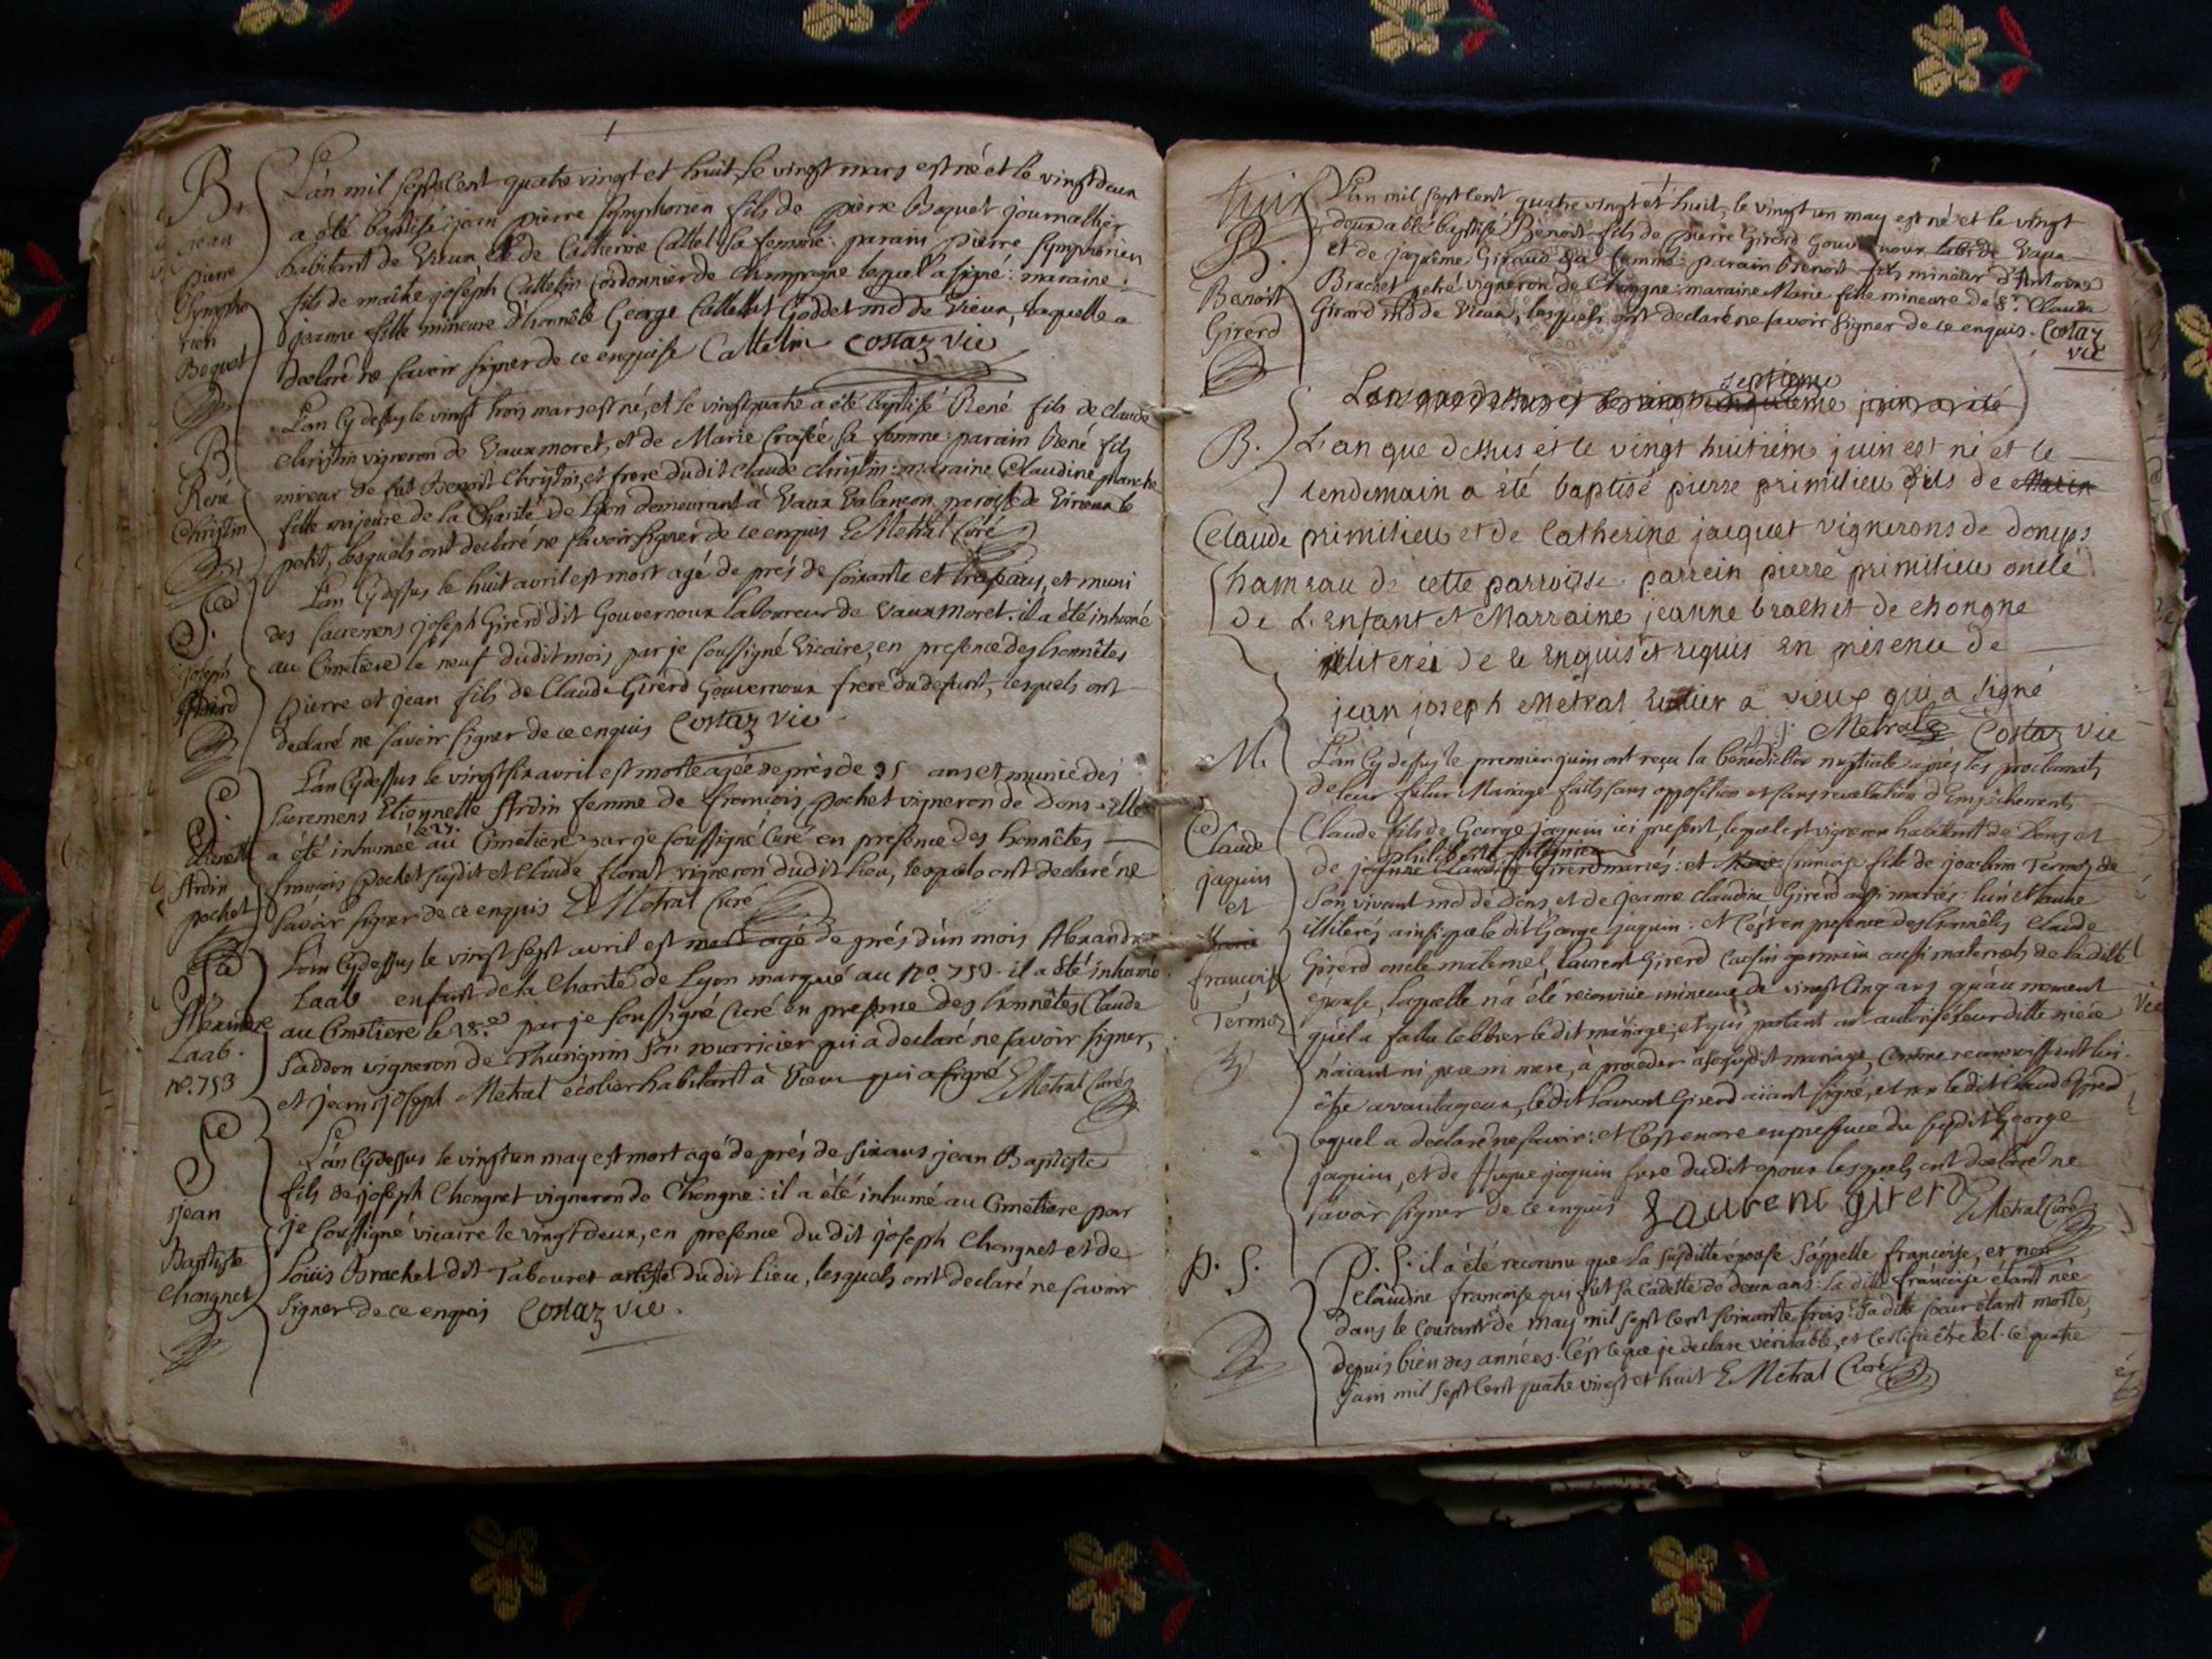 B.
jean
pierre
Sympho
rien
Boquet
L'an mil sept cent quatre vingt et huit, le vingt mars est né et le vingt deux
a été baptisé jean pierre Symphorien fils de pierre Boquet journallier
habitant de Vieux et de Catherine Cattet sa femme: parain pierre Symphorien
fils de maître joseph Cattelin Cordonnier de Champagne lequel a signé: maraine
jeanne fille mineure d'honnête George Cattet Goddet md de Vieux, laquelle a
declaré ne savoir signer de ce enquise Cattelin Costaz vic
B
René
Christin
L'an cy dessus le vingt trois mars est né, et le vingt quatre a été baptisé René fils de claude
christin vigneron de Vauxmoret, et de Marie Croisée sa femme: parain René fils
mineur de fut Benoit Christin, et frere dudit claude christin: maraine Claudine planche
fille majeure de la Charité de Lyon demeurant à Vaux Valancon paroisse de Virieux le
petit, lesquels ont declaré ne savoir signer de ce enquis E Metral Curé
S.
joseph
Girerd
L'an cy dessus le huit avril est mort agé de prés de soixante et ans, et muni
des sacremens joseph Girerd dit Gouvernoux laboureur de Vauxmoret. il a été inhumé
au Cimetiere le neuf dudit mois par je soussigné Vicaire, en presence des honnêtes
pierre et jean fils de Claude Girerd Gouvernoux frere du defunt, lesquels ont
declaré ne savoir signer de ce enquis Costaz vic
S.
Etiennette
Ardin
pochet
L'an cy dessus le vingt six avril est morte agée de près de 35 ans et munie des
sacremens Etiennette Ardin femme de francois pochet vigneron de Dons. Elle
a été inhumée le 27. au Cimetiere par je soussigné Curé en presence des honnêtes
francois pochet susdit et Claude florat vigneron dudit lieu, lesquels ont declaré ne
savoir signer de ce enquis E Metral Curé
S.
Alexandre
Laab.
no. 753
L'an cy dessus le vingt sept avril est mort agé de près d'un mois Alexandre
Laab enfant de la Charité de Lyon marqué au No. 753. il a été inhumé
au Cimetiere le 28.e par je soussigné Curé en presence des honnêtes Claude
Saddon vigneron de Thurignin son nourricier qui a declaré ne savoir signer,
et jean joseph Metral ecolier habitant à Vieux qui a signé E Metral Curé
S
jean
Baptiste
Chongnet
L'an cy dessus le vingt un may est mort agé de prés de six ans jean Baptiste
fils de joseph Chongnet vigneron de Chongne: il a été inhumé au Cimetiere par
je soussigné vicaire le vingt deux, en presence du dit joseph Chongnet et de
Loüis Brachet dit Tabouret artiste dudit lieu, lesquels ont declaré ne savoir
signer de ce enquis Costaz vic.
B.
Benoit
Girerd
L'an mil sept cent quatre vingt et huit, le vingt un may est né et le vingt
deux a été baptisé Benoit fils de pierre Girerd Gouvernoux labr de Vaux
et de jaquême Giraud sa femme: parain Benoit fils mineur d'Antoine
Brachet vigneron de Chongne: maraine Marie fille mineure de Sr. Claude
Girard md de Vieux, lesquels ont declaré ne savoir signer de ce enquis. Costaz
vic
septieme
L'an que dessus et le vingt cinquieme juin a été
B.
L'an que dessus et le vingt huitieme juin est né et le
lendemain a été baptisé pierre primilieu fils de Marin
Claude primilieu et de Catherine jacquet vignerons de doneps
hameau de cette parroisse. parrein pierre primilieu oncle
de L'enfant et Marraine jeanne brachet de chongne
illiterés de ce enquis et requis en présence de
jean joseph Metral à vieux qui a signé
j. j. Metral Costaz vic
M.
Claude
jaquin
et
Marie
francoise
Termoz
L'an cy dessus le premier juin ont reçu la bénédiction nuptiale après les proclamats
de leur futur Mariage faits sans opposition et sans revelation d'Empêchements
Claude fils de George jaquin ici present, lequel est vigneron habitant de Dons et
philiberte
de jeanne Claudine Girerd mariés: et Marie francoise fille de joachim Termoz de
son vivant md de Dons, et de jeanne claudine Girerd aussi mariés: l'un et l'autre
illiterés ainsi que le dit George jaquin: et c'est en presence des honnêtes Claude
Girerd oncle maternel, Laurent Girerd Cousin germain aussi maternels de la ditte
épouse, laquelle n'a été reconnue mineure de vingt cinq ans qu'au moment
qu'il a fallu celebrer le dit mariage; et qui partant ont autorisé leur ditte niéce
n'aiant ni pere ni mere, à proceder a son susdit mariage, comme reconnoissant lui
être avantageux, le dit Laurent Girerd aiant signé, et non le dit Claude Girerd
lequel a declaré ne savoir: et c'est encore en presence du susdit George
jaquin, et de Hugue jaquin frere dudit epoux lesquels ont declaré ne
savoir signer de ce enquis Laurent girerd E Metral Curé
P. S.
P. S. il a été reconnu que la susditte épouse s'appelle francoise, et non
claudine francoise qui fut sa Cadette de deux ans: la ditte francoise étant née
dans le courant de may mil sept cent soixante trois: sa ditte soeur étant morte
depuis bien des années. C'est ce que je declare véritable, et certifie être tel. ce quatre
juin mil sept cent quatre vingt et huit E Metral Curé